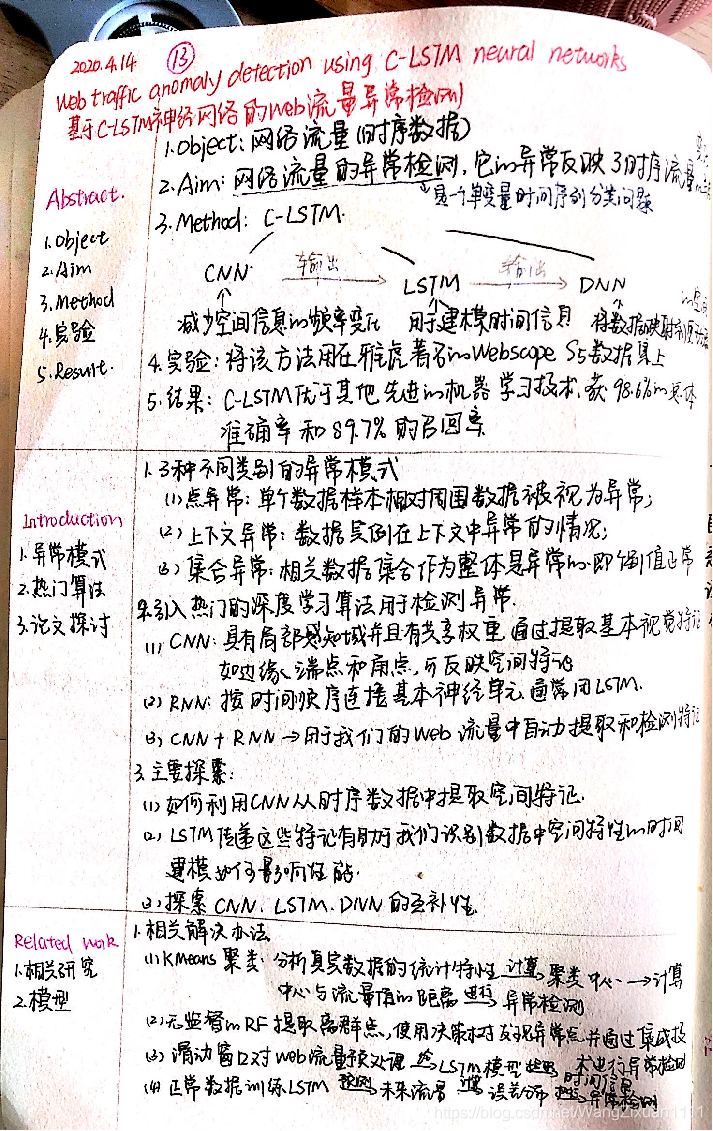 2020.4.14 ⑬
Web traffic anomaly detection using C-LSTM neural networks
基于C-LSTM神经网络的Web流量异常检测
Abstract.
1. Object
2. Aim
3. Method
4. 实验
5. Result.
1. Object: 网络流量(时序数据)
2. Aim: 网络流量的异常检测, 它的异常反映了时序流量
是一个单变量时间序列分类问题
3. Method: C-LSTM.
CNN 输出 LSTM 输出 DNN
减少空间信息的频率变化 用于建模时间信息 将数据映射
4. 实验: 将该方法用在雅虎著名的Webscope S5数据集上
5. 结果: C-LSTM优于其他先进的机器学习技术, 获98.6%的总体
准确率和89.7%的召回率.
Introduction
1. 异常模式
2. 热门算法
3. 论文探讨
1. 3种不同类别的异常模式
(1) 点异常: 单个数据样本相对周围数据被视为异常;
(2) 上下文异常: 数据实例在上下文中异常的情况;
(3) 集合异常: 相关数据集合作为整体是异常的. 即个别值正常
2. 引入热门的深度学习算法用于检测异常.
(1) CNN: 具有局部感知域并且有共享权重 通过提取基本视觉特征
如边缘、端点和角点, 可反映空间特征
(2) RNN: 按时间顺序连接基本神经单元. 通常用LSTM.
(3) CNN + RNN → 用于我们的Web流量中自动提取和检测特征
3. 主要探索:
(1) 如何利用CNN从时序数据中提取空间特征.
(2) LSTM传递这些特征有助于我们识别数据中空间特性的时间
建模如何影响性能.
(3) 探索CNN、LSTM、DNN的互补性.
Related work
1. 相关研究
2. 模型
1. 相关解决办法
(1) KMeans聚类: 分析真实数据的统计特性 计算 聚类中心 → 计算
中心与流量值的距离 进行 异常检测
(2) 无监督的RF提取离群点, 使用决策树发现异常点 并通过集成技
(3) 滑动窗口对Web流量预处理 LSTM模型 时间信息 来进行异常检测
(4) 正常数据训练LSTM 预测 未来流量 计算 误差分布 异常检测
https://blog.csdn.net/WangZixuan1111